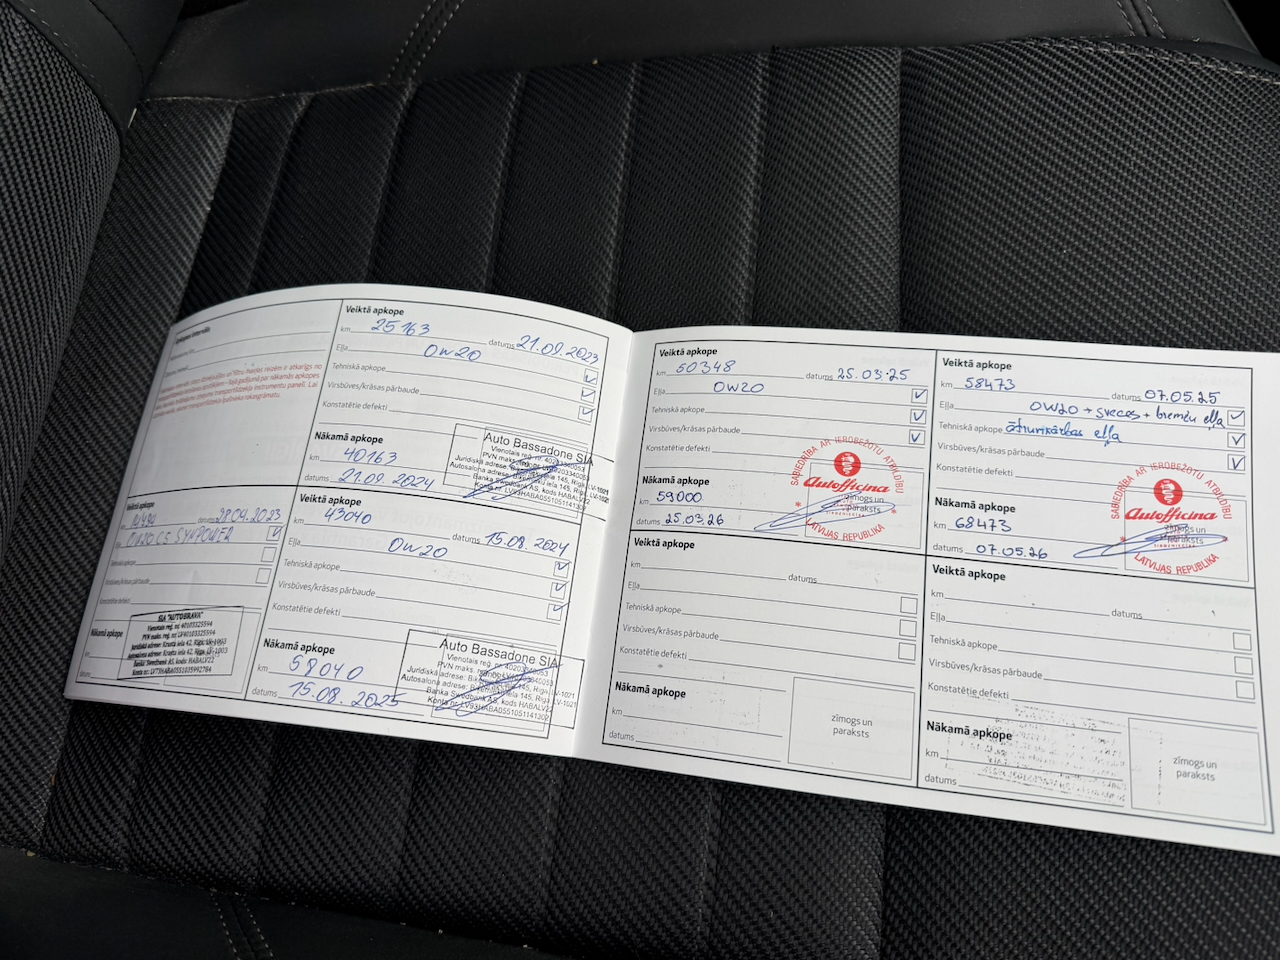 Apkopes intervāls
Veiktā apkope
km 25163 datums 21.09.2023
Eļļa 0W20
Tehniskā apkope
Virsbūves/krāsas pārbaude
Konstatētie defekti
Nākamā apkope
km 40163
datums 21.09.2024
Auto Bassadone SIA
Vienotais reģ. nr. 40203340053
Juridiskā adrese:
Autosalona adrese:
Banka Swedbank AS, kods HABALV22
Konta nr. LV93HABA0551051141302
Veiktā apkope
datums 28.04.2023
0W20 C5 SYNPOWER
Tehniskā apkope
Virsbūves/krāsas pārbaude
Konstatētie defekti
Nākamā apkope
km
datums
SIA "AUTOBRAVA"
Vienotais reģ. nr. 40103325594
PVN maks. reģ. nr. LV40103325594
Juridiskā adrese: Krasta iela 42, Rīga, LV-1003
Banka: Swedbank AS, kods HABALV22
Veiktā apkope
km 43040
datums 15.08.2024
Eļļa 0W20
Tehniskā apkope
Virsbūves/krāsas pārbaude
Konstatētie defekti
Nākamā apkope
km 58040
datums 15.08.2025
Auto Bassadone SIA
Vienotais reģ. nr. 40203340053
PVN maks.
Juridiskā adrese:
Autosalona adrese:
Banka Swedbank AS, kods HABALV22
Konta nr. LV93HABA0551051141302
Veiktā apkope
km 50348 datums 25.03.25
Eļļa 0W20
Tehniskā apkope
Virsbūves/krāsas pārbaude
Konstatētie defekti
Nākamā apkope
km 59000
datums 25.03.26
SABIEDRĪBA AR IEROBEŽOTU ATBILDĪBU
Autofficina
zīmogs un
paraksts
* LATVIJAS REPUBLIKA *
Veiktā apkope
km 58473 datums 07.05.25
Eļļa 0W20 + sveces + bremžu eļļa
Tehniskā apkope ātrumkārbas eļļa
Virsbūves/krāsas pārbaude
Konstatētie defekti
Nākamā apkope
km 68473
datums 07.05.26
SABIEDRĪBA AR IEROBEŽOTU ATBILDĪBU
Autofficina
zīmogs un
paraksts
* LATVIJAS REPUBLIKA *
Veiktā apkope
km datums
Eļļa
Tehniskā apkope
Virsbūves/krāsas pārbaude
Konstatētie defekti
Nākamā apkope
km
datums
zīmogs un
paraksts
Veiktā apkope
km datums
Eļļa
Tehniskā apkope
Virsbūves/krāsas pārbaude
Konstatētie defekti
Nākamā apkope
km
datums
zīmogs un
paraksts